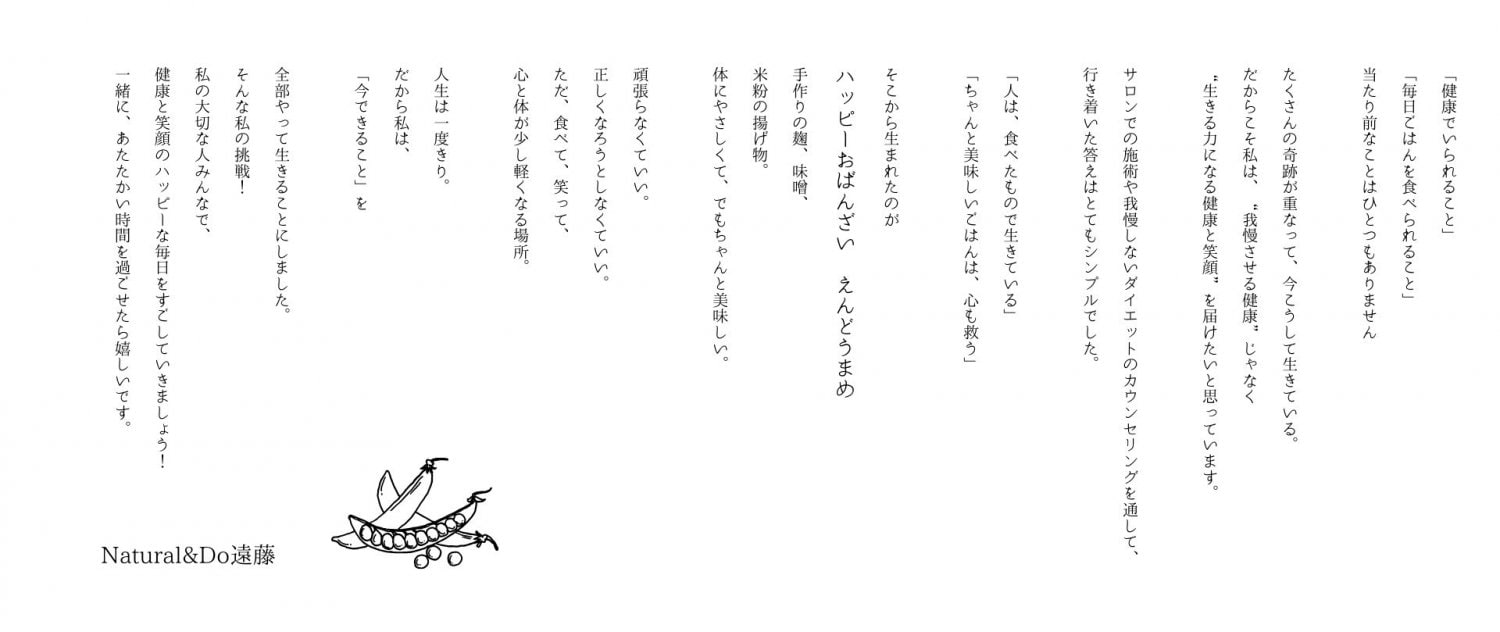 「健康でいられること」
「毎日ごはんを食べられること」
当たり前なことはひとつもありません
たくさんの奇跡が重なって、今こうして生きている。
だからこそ私は、“我慢させる健康”じゃなく
“生きる力になる健康と笑顔”を届けたいと思っています。
サロンでの施術や我慢しないダイエットのカウンセリングを通して、
行き着いた答えはとてもシンプルでした。
「人は、食べたもので生きている」
「ちゃんと美味しいごはんは、心も救う」
そこから生まれたのが
ハッピーおばんざい　えんどうまめ
手作りの麹、味噌、
米粉の揚げ物。
体にやさしくて、でもちゃんと美味しい。
頑張らなくていい。
正しくなろうとしなくていい。
ただ、食べて、笑って、
心と体が少し軽くなる場所。
人生は一度きり。
だから私は、
「今できること」を
全部やって生きることにしました。
そんな私の挑戦！
私の大切な人みんなで、
健康と笑顔のハッピーな毎日をすごしていきましょう！
一緒に、あたたかい時間を過ごせたら嬉しいです。
Natural&Do遠藤